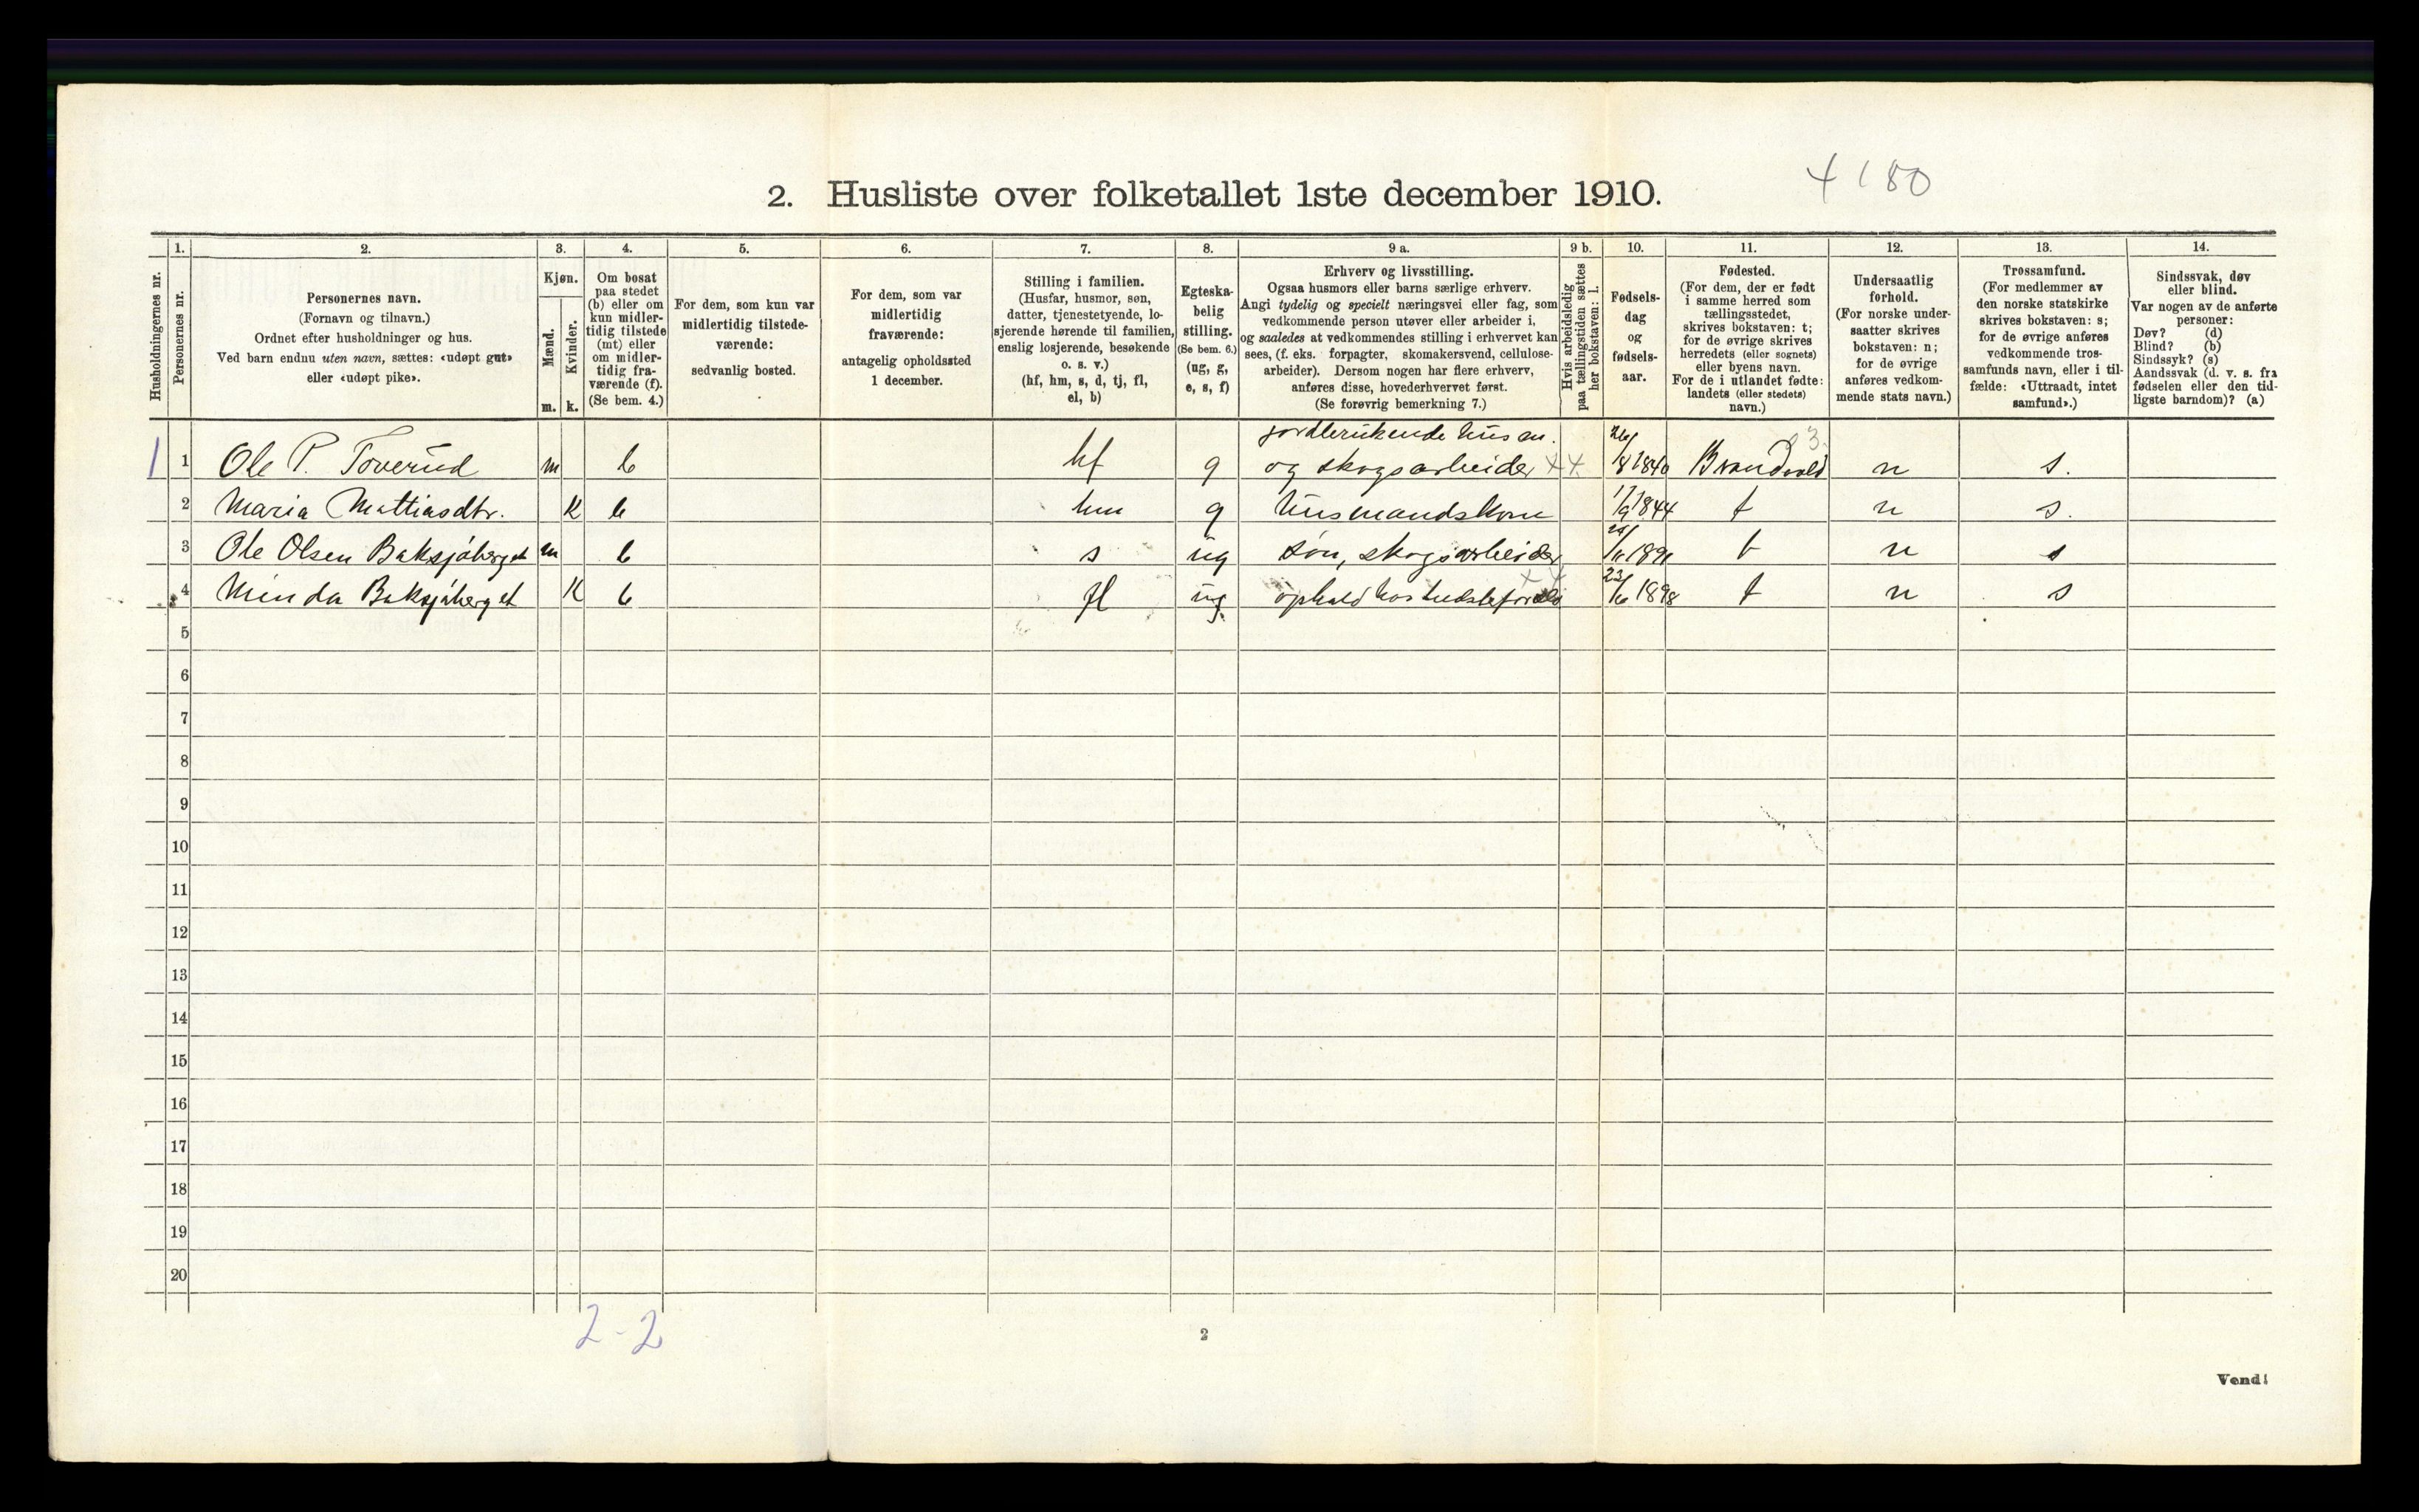 4180
2. Husliste over folketallet 1ste december 1910.
Husholdningernes nr.
1.
Personernes nr.
2.
Personernes navn.
(Fornavn og tilnavn.)
Ordnet efter husholdninger og hus.
Ved barn endnu uten navn, sættes: «udøpt gut»
eller «udøpt pike».
3.
Kjøn.
Mænd.
Kvinder.
m. k.
4.
Om bosat
paa stedet
(b) eller om
kun midler-
tidig tilstede
(mt) eller
om midler-
tidig fra-
værende (f).
(Se bem. 4.)
5.
For dem, som kun var
midlertidig tilstede-
værende:
sedvanlig bosted.
6.
For dem, som var
midlertidig
fraværende:
antagelig opholdssted
1 december.
7.
Stilling i familien.
(Husfar, husmor, søn,
datter, tjenestetyende, lo-
sjerende hørende til familien,
enslig losjerende, besøkende
o. s. v.)
(hf, hm, s, d, tj, fl,
el, b)
8.
Egteska-
belig
stilling.
(Se bem. 6.)
(ug, g,
e, s, f)
9 a.
Erhverv og livsstilling.
Ogsaa husmors eller barns særlige erhverv.
Angi tydelig og specielt næringsvei eller fag, som
vedkommende person utøver eller arbeider i,
og saaledes at vedkommendes stilling i erhvervet kan
sees, (f. eks. forpagter, skomakersvend, cellulose-
arbeider). Dersom nogen har flere erhverv,
anføres disse, hovederhvervet først.
(Se forøvrig bemerkning 7.)
9 b.
Hvis arbeidsledig
paa tællingstiden sættes
her bokstaven: l.
10.
Fødsels-
dag
og
fødsels-
aar.
11.
Fødested.
(For dem, der er født
i samme herred som
tællingsstedet,
skrives bokstaven: t;
for de øvrige skrives
herredets (eller sognets)
eller byens navn.
For de i utlandet fødte:
landets (eller stedets)
navn.)
12.
Undersaatlig
forhold.
(For norske under-
saatter skrives
bokstaven: n;
for de øvrige
anføres vedkom-
mende stats navn.)
13.
Trossamfund.
(For medlemmer av
den norske statskirke
skrives bokstaven: s;
for de øvrige anføres
vedkommende tros-
samfunds navn, eller i til-
fælde: «Uttraadt, intet
samfund».)
14.
Sindssvak, døv
eller blind.
Var nogen av de anførte
personer:
Døv? (d)
Blind? (b)
Sindssyk? (s)
Aandssvak (d. v. s. fra
fødselen eller den tid-
ligste barndom)? (a)
1 1 Ole P. Toverud m b hf g jordbrukende husm. og skogsarbeider 26/8 1840 Brandvold n s.
2 Maria Mattiasdtr. K b hm g husmandskone 1/9 1844 t n s.
3 Ole Olsen Baksjøberget m b s ug søn, skogsarbeider 1891 t n s
4 Minda Baksjøberget K b fl ug ophold hos 23/6 1898 t n s
5
6
7
8
9
10
11
12
13
14
15
16
17
18
19
20
2-2
2
Vend!